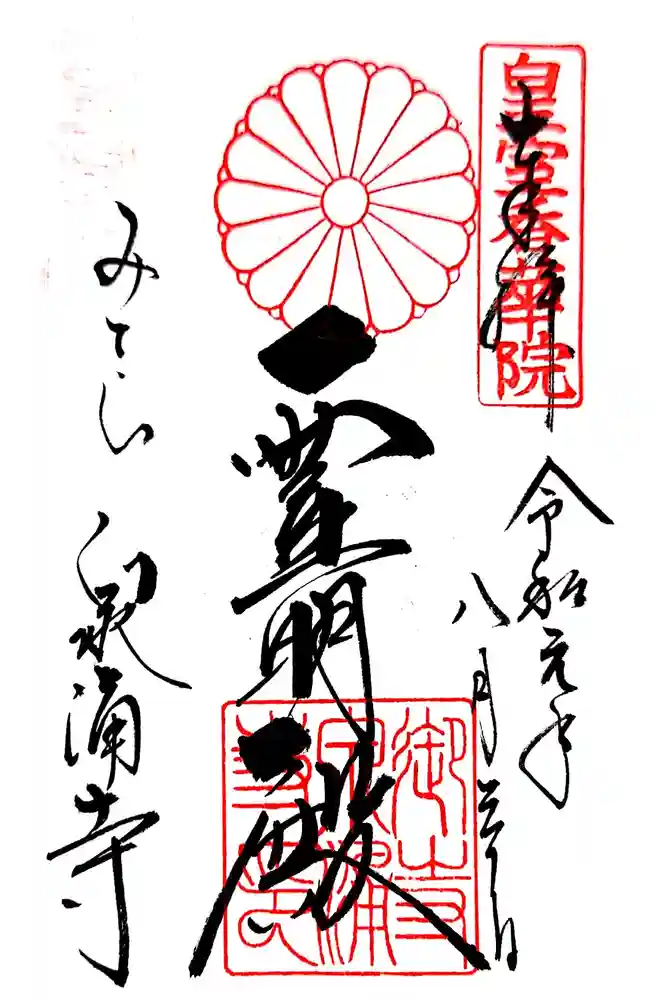 皇室香華院
奉拝
令和元年
八月
日
霊明殿
御寺
泉涌
みてら 泉涌寺